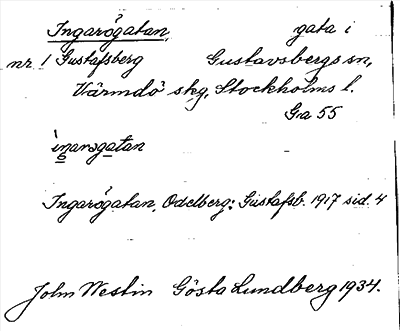 Ingarögatan, gata i
nr 1 Gustafsberg Gustavsbergs sn,
Värmdö skg, Stockholms l.
Ga 55
ingarogatan
Ingarögatan, Odelberg: Gustafsb. 1917 sid. 4
John Westin Gösta Lundberg 1934.